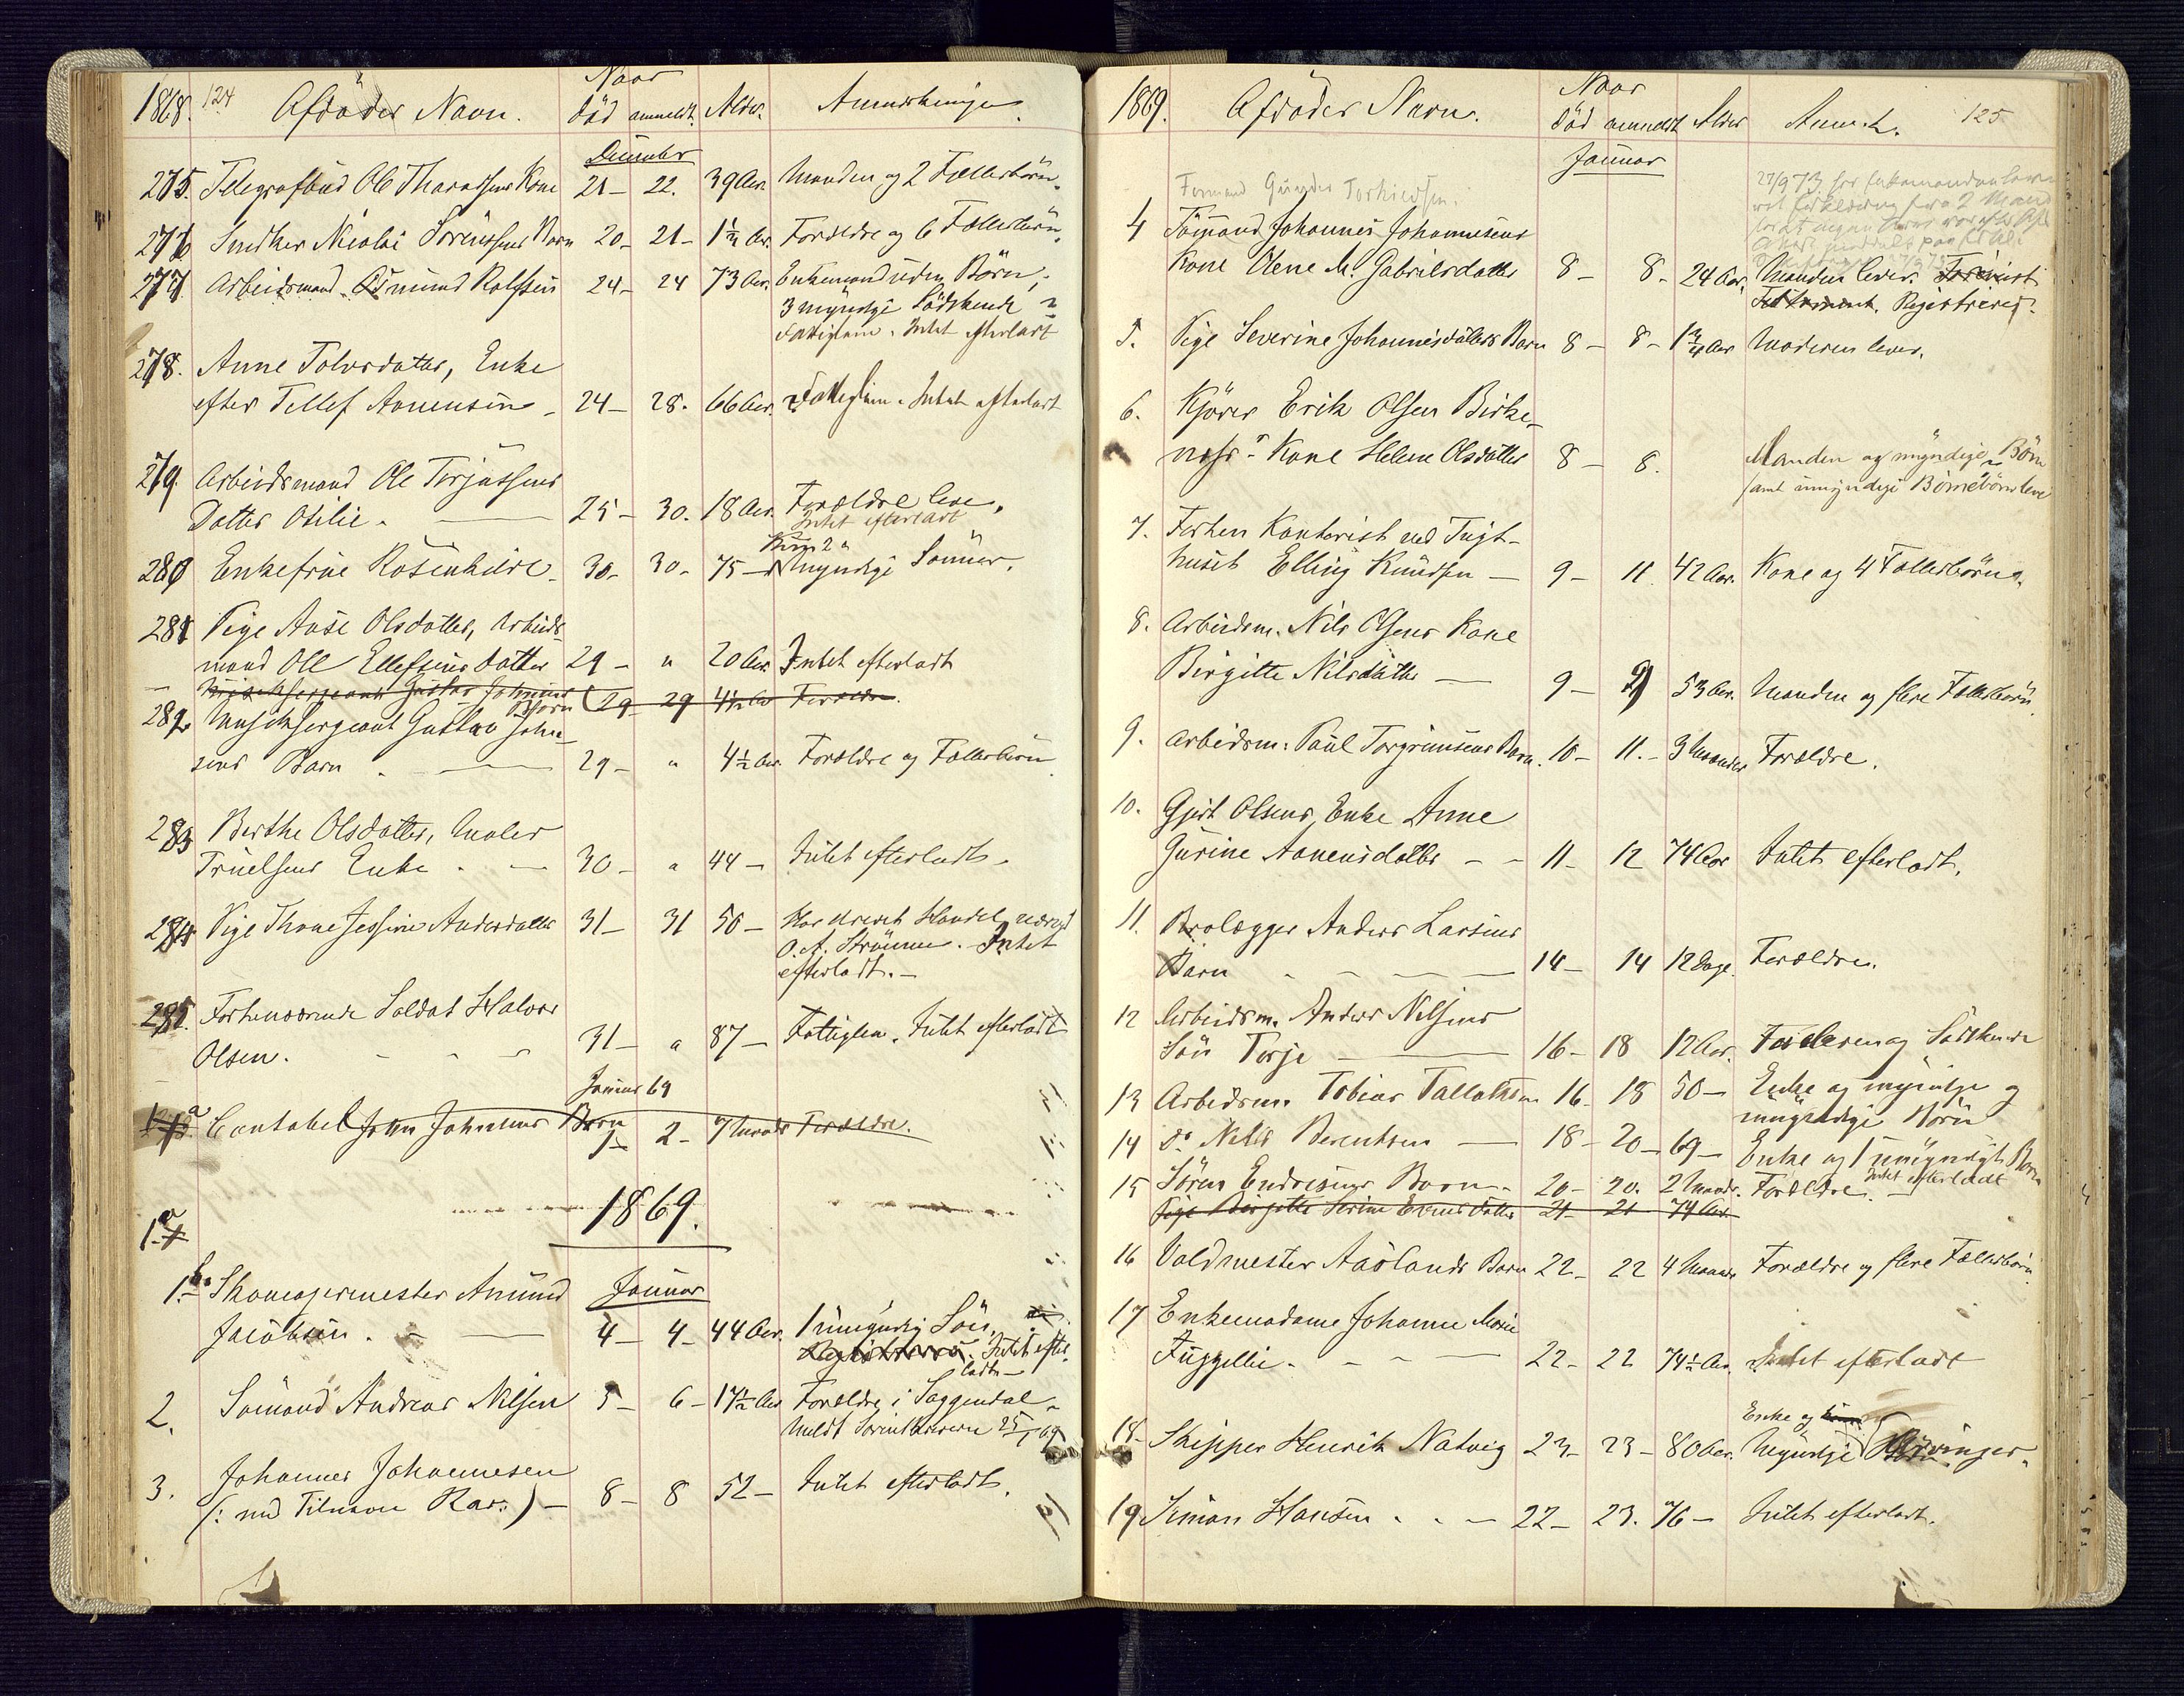 1868. 124 Afdødes Navn. Naar død anmeldt. Alder. Anmerkninger.
December
275. Telegrafbud Ole Tharaldsens Kone 21 – 22. 39 Aar. Manden og 2 Fællesbørn.
276 Snedker Nicolai Sørenssens Barn 20 – 21 – 1½ Aar. Forældre og 6 Fællesbørn.
277 Arbeidsmand Osmund Rolfsen 24 – 24 73 Aar. Enkemand uden Børn,
3 myndige Södskende
Fattiglem. Intet efterladt
278. Anne Tolvsdatter, Enke
efter Tellef Aanensen – 24 – 28. 66 Aar. Fattiglem. Intet efterladt
279. Arbeidsmand Ole Terjussens
Datter Otilie. — 25 – 30. 18 Aar. Forældre leve.
Intet efterladt
280 Enkefrue Rosenkilde – 30 – 30 – 75 – Kun 2 myndige Sønner.
281 Pige Anse Olsdatter, Arbeids-
mand Ole Ellefsens Datter 29 – " 20 Aar. Intet efterladt
Musiksergeant Gustav Johnsens Barn 29 – 29 4½ Aar Forældre.
282 Musiksergeant Gustav John-
sens Barn . — 29 – " 4½ Aar. Forældre og Fællesbørn
283 Berthe Olsdatter, Maler
Truelsens Enke . — 30 – " 44 – Intet efterladt.
284 Pige Thone Jessine Andersdatter 31 – 31 50 – Har drevet Handel
O. A. Strømme. Intet
efterladt. –
285. Forhenværende Soldat Halvor
Olsen. – – – 31 – " 87 – Fattiglem. Intet efterladt
Januar 69
1 a Contabel John Johnsens Barn 1 – 2 – 7 Maander Forældre.
1869.
1 a
1 b. Skomagermester Amund Januar
Jacobsen. – — 4 – 4 – 44 Aar. 1 umyndig Søn.
Intet efter-
ladt –
2. Sømand Andreas Nilsen 5 – 6 – 17½ Aar Forældre i Saggendal.
Meldt Sorenskriveren 25/1 69
3. Johannes Johannesen
(: med Tilnavn Rar:) – 8 – 8 52 – Intet efterladt.
1869. Afdødes Navn. Naar død anmeldt Alder Anmk. 125
Januar
Formand Gunder Torkildsen.
4 Tømmand Johannes Johannesens
Kone Olene M. Gabrielsdatter 8 – 8 – 24 Aar. Manden lever.
Registreret.
5. Pige Severine Johannesdatters Barn 8 – 8 – 1¾ Aar Moderen lever.
6. Kjører Erik Olsen Birke-
næs's Kone Helene Olsdatter 8 – 8. Manden og myndige Børn
samt umyndige Børnebørn leve
7. Forhen Kontorist ved Tugt-
huset Elling Knudsen — 9 – 11. 42 Aar. Kone og 4 Fællesbørn.
8. Arbeidsm. Nils Olsens Kone
Birgitte Nilsdatter — 9 – 9 53 Aar. Manden og flere Fællesbørn.
9. Arbeidsm. Paul Torgrimsens Barn. 10 – 11. – 3 Maaneder Forældre.
10. Gjert Olsens Enke Anne
Gurine Aanensdatter – – 11 – 12 74 Aar Intet efterladt.
11. Brolægger Anders Larsens
Barn – – – — 14 – 14 12 Dage. Forældre.
12 Arbeidsm. Anders Nilsens
Søn Terje — 16 – 18 12 Aar. Faderen og Södskende
13 Arbeidsm. Tobias Tallaksen 16 – 18 50 – Enke og myndige og
umyndige Børn
14 do Nils Berentsen — 18 – 20 – 69 – Enke og 1 umyndigt Barn
Intet efterladt
15 Søren Endresens Barn. 20 – 20. 2 Maander. Forældre. –
Pige Birgitte Serine Evensdatter 21 – 21 74 Aar
16 Voldmester Aaslands Barn 22 – 22 4 Maander Forældre og flere Fællesbørn.
17 Enkemadame Johanne Marie
Fuggellie. – – — 22 – 22 74½ Aar. Intet efterladt
18 – Skipper Henrik Natvig 23 – 23 – 80 Aar. Enke og
Myndige Livsarvinger.
19 Simon Hansen . . – 22 – 23. 76 – Intet efterladt.